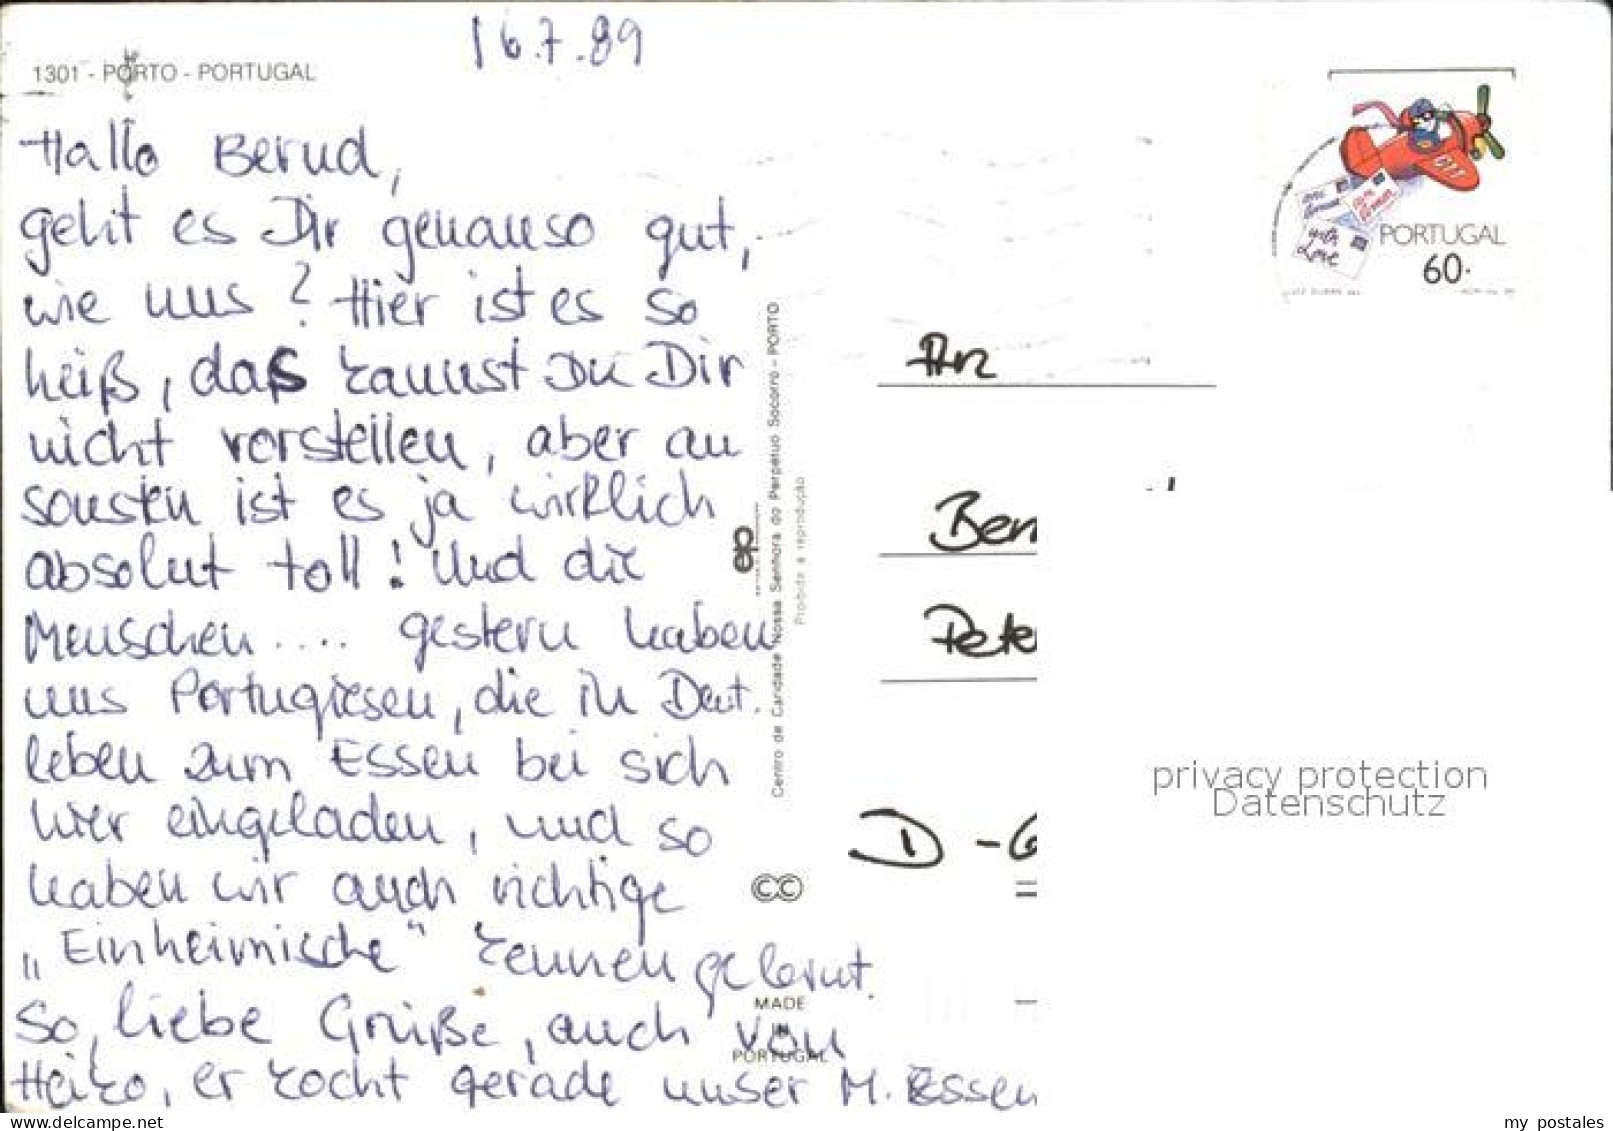 16.7.89
1301 - PORTO - PORTUGAL
Hallo Bernd,
geht es Dir genauso gut,
wie uns? Hier ist es so
heiß, das kannst Du Dir
nicht vorstellen, aber an
sonsten ist es ja wirklich
absolut toll! Und die
Menschen.... gestern haben
uns Portugiesen, die in Deut.
leben zum Essen bei sich
hier eingeladen, und so
haben wir auch richtige
„Einheimische“ kennen gelernt.
So, liebe Grüße, auch von
Heiko, er kocht gerade unser M. Essen
Centro de Caridade Nossa Senhora do Perpétuo Socorro - PORTO
Proibida a reprodução
ep
CC
MADE
IN
PORTUGAL
CTT
with
Love
PORTUGAL
60.
An
Ben
Pete
D - G
privacy protection
Datenschutz
www.delcampe.net
my_postales